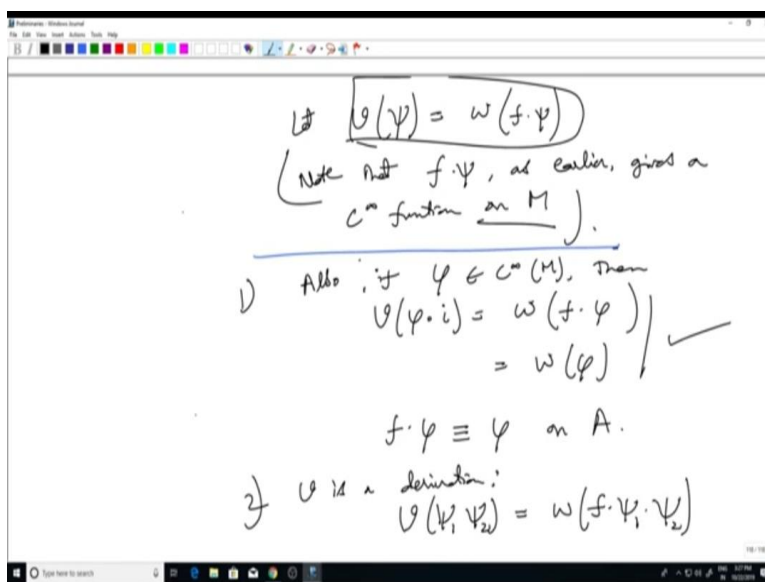 Preliminaries - Windows Journal
File Edit View Insert Actions Tools Help
Let v(ψ) = w(f·ψ)
(Note that f·ψ, as earlier, gives a
C^∞ function on M).
1) Also, if φ ∈ C^∞(M), then
v(φ∘i) = w(f·φ)
= w(φ)
f·φ ≡ φ on A.
2) v is a derivation:
v(ψ₁ψ₂) = w(f·ψ₁·ψ₂)
Type here to search
3:27 PM